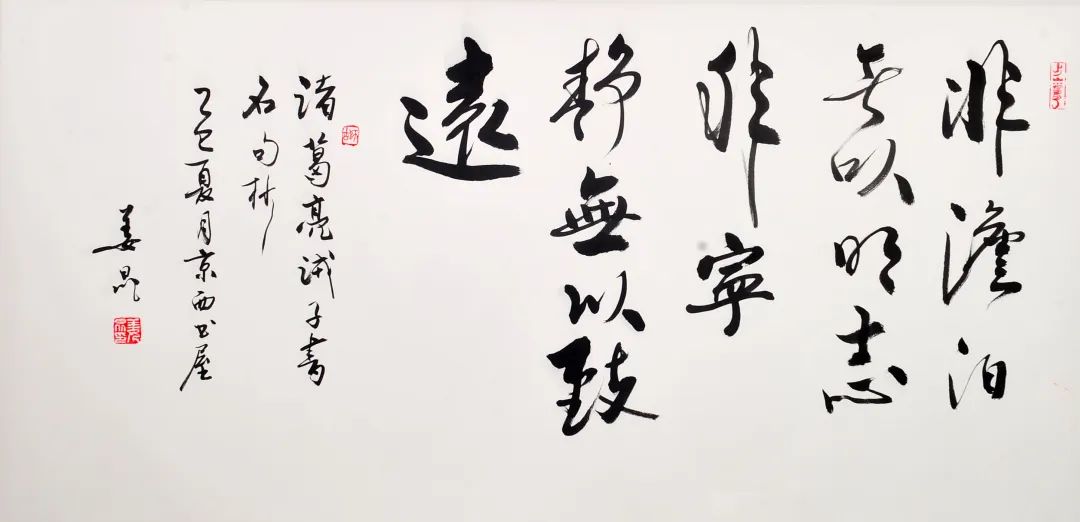 非澹泊
无以明志
非寧
静無以致
遠
诸葛亮诫子書
名句抄
乙巳夏月京西书屋
姜昆